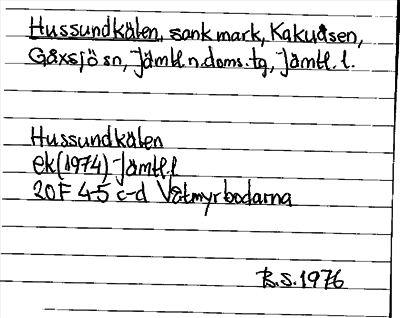 Hussundkälen, sank mark, Kakuåsen,
Gåxsjö sn, Jämtl. n. doms. tg, Jämtl. l.
Hussundkälen
ek (1974) Jämtl. l
20 F 4-5 c-d Våtmyrbodarna
B.S. 1976